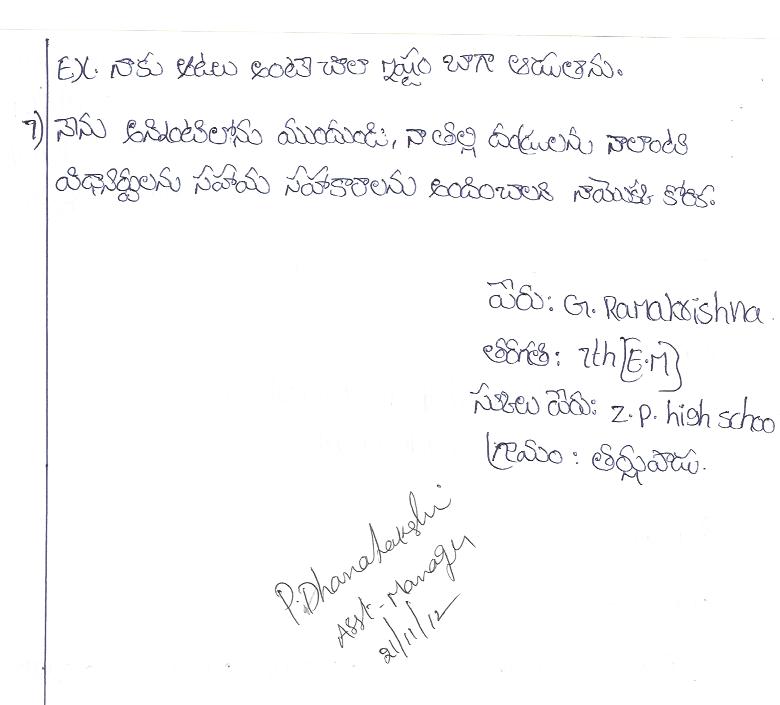 EX. నాకు ఆటలు అంటె చాలా ఇష్టం బాగా ఆడుతాను.
7) నేను అన్నింటిలోను ముందుండి, నా తల్లి దండ్రులను నాలాంటి
విధ్యార్థులను సహాయ సహాకారాలను అందించాలని నాయొక్క కోరిక.
పేరు: G. Ramakrishna.
తరగతి: 7th [E.M]
స్కూలు పేరు: Z.P. high schoo
గ్రామం : తర్లుపాడు.
P. Dhanalakshi
Asst-Manager
21/11/12